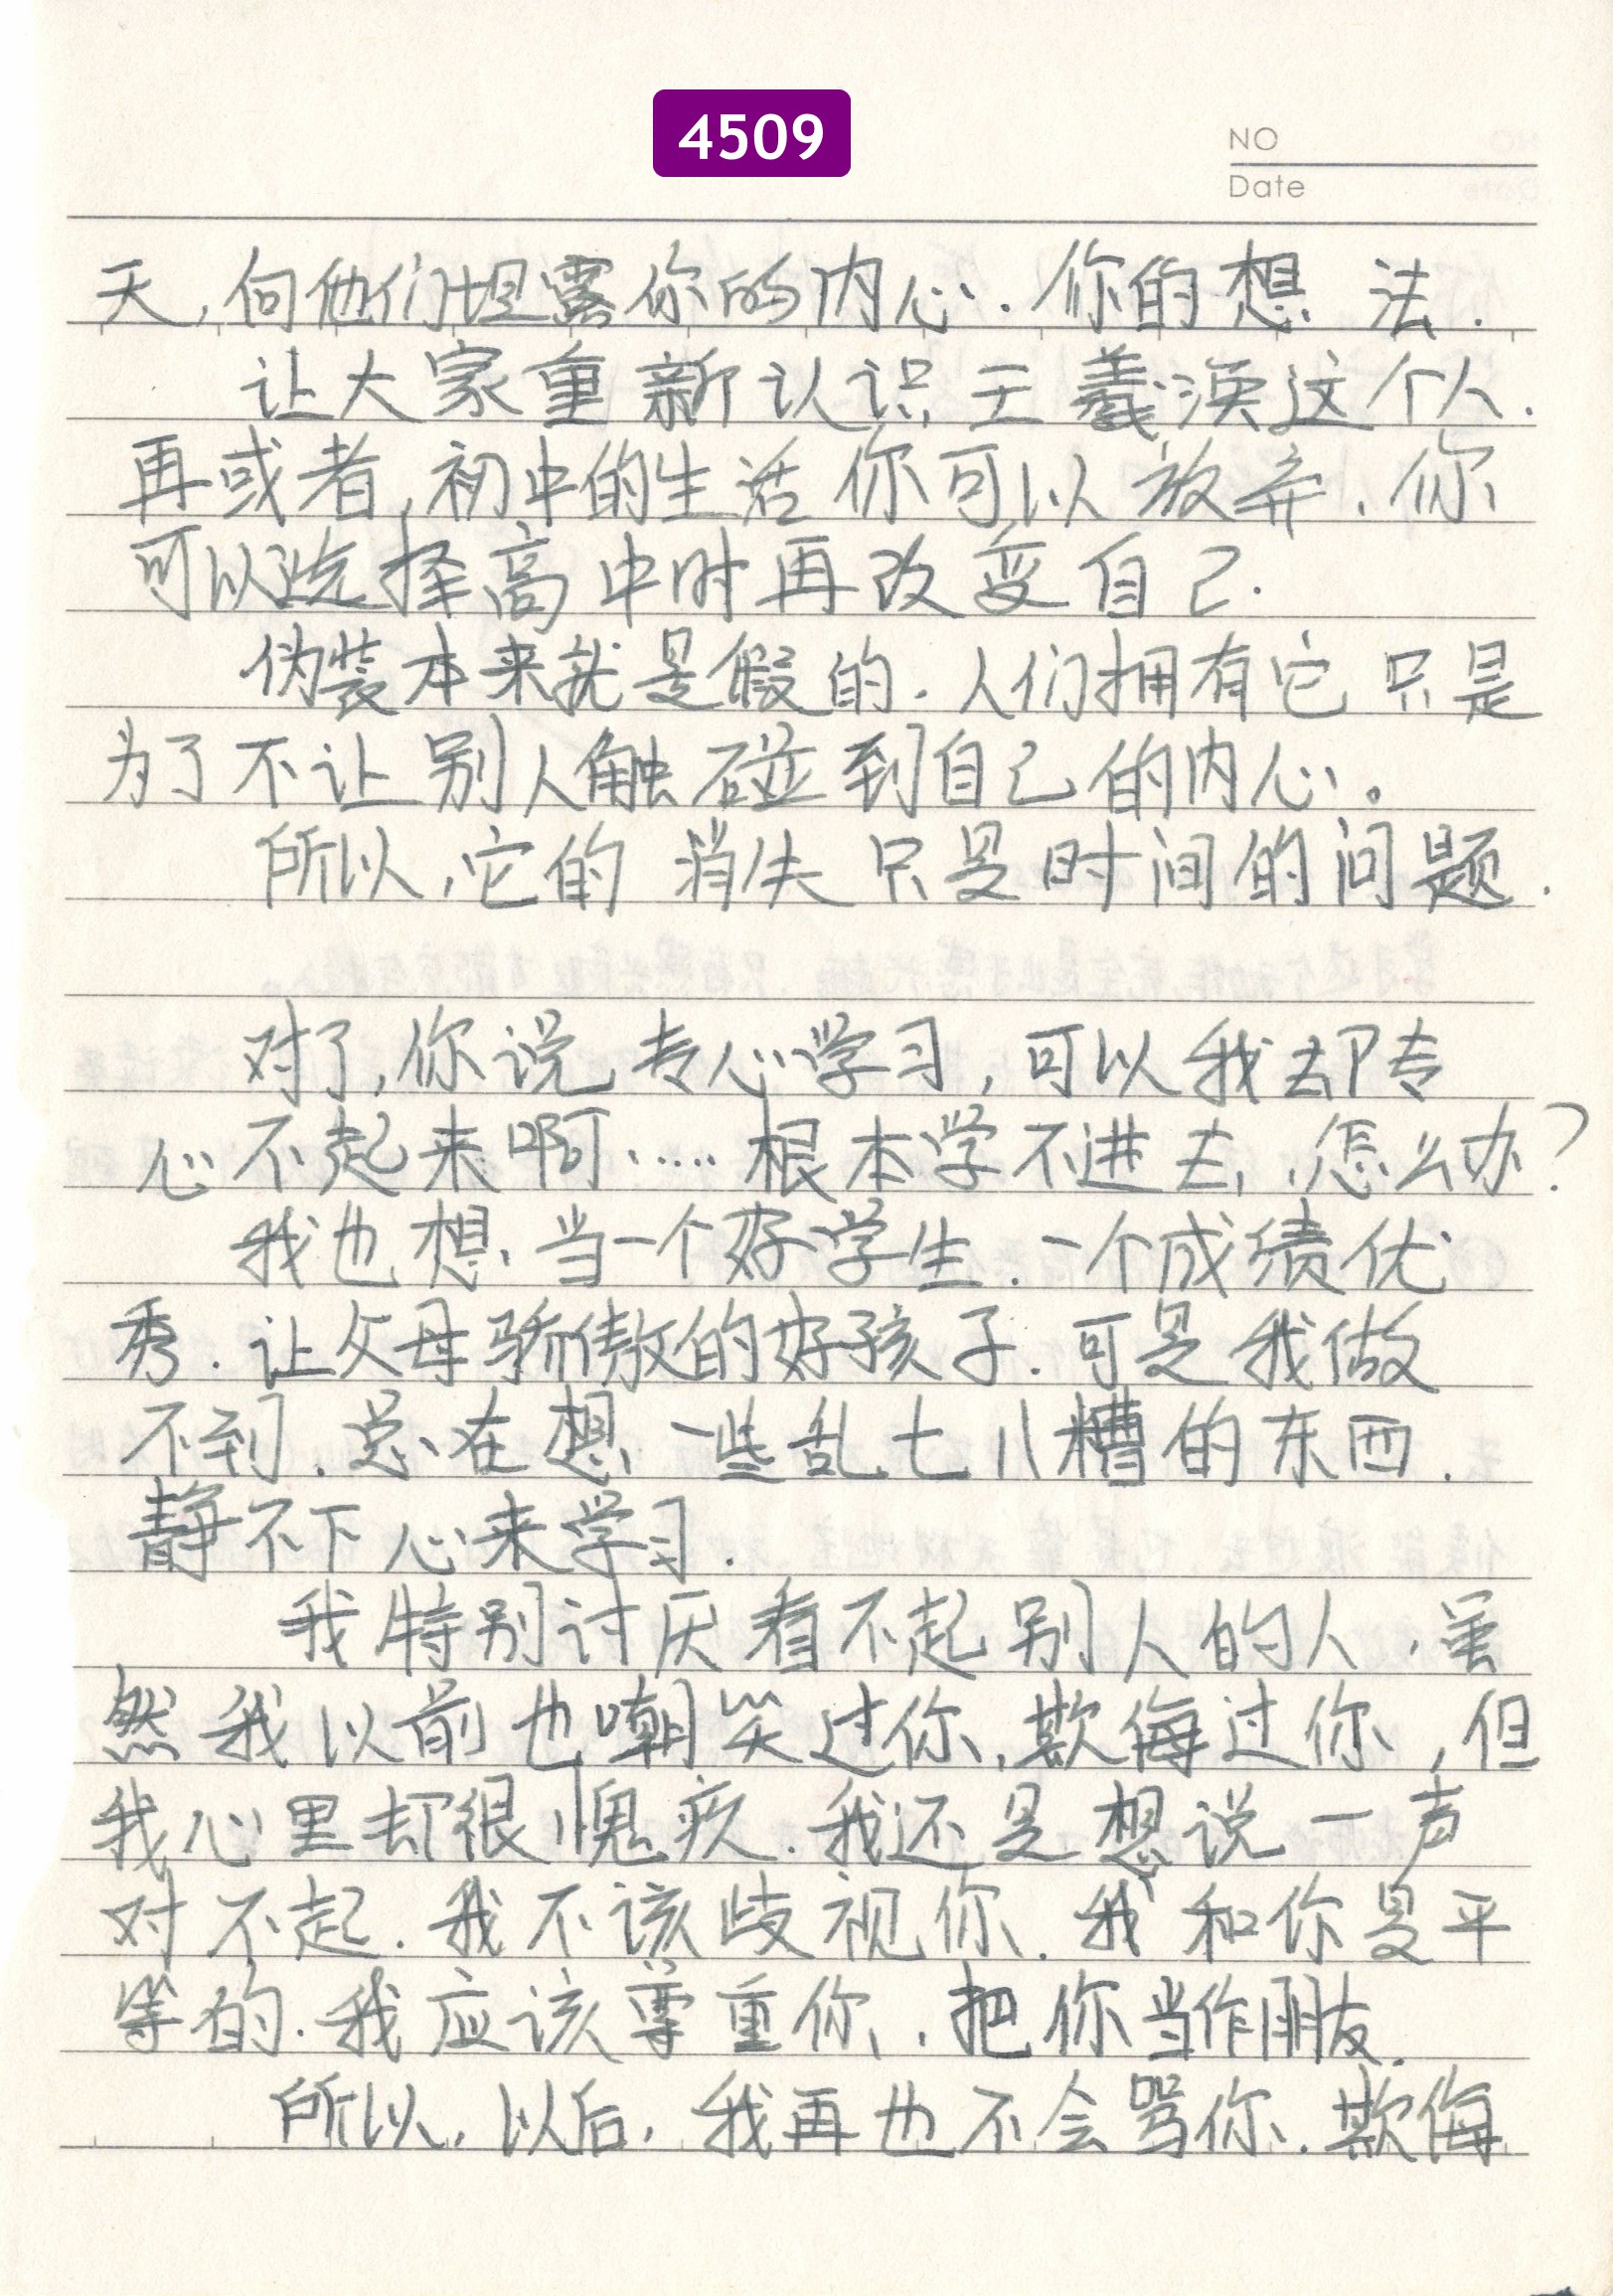 4509
NO
Date
天,向他们坦露你的内心.你的想法.
让大家重新认识王羲涣这个人.
再或者,初中的生活你可以放弃.你
可以选择高中时再改变自己.
伪装本来就是假的.人们拥有它只是
为了不让别人触碰到自己的内心。
所以,它的消失只是时间的问题.
对了,你说专心学习,可以我却专
心不起来啊.....根本学不进去,怎么办?
我也想当一个好学生.一个成绩优
秀.让父母骄傲的好孩子.可是我做
不到.总在想一些乱七八糟的东西.
静不下心来学习.
我特别讨厌看不起别人的人.虽
然我以前也嘲笑过你,欺侮过你,但
我心里却很愧疚.我还是想说一声
对不起.我不该歧视你.我和你是平
等的.我应该尊重你,把你当作朋友.
所以,以后,我再也不会骂你.欺侮